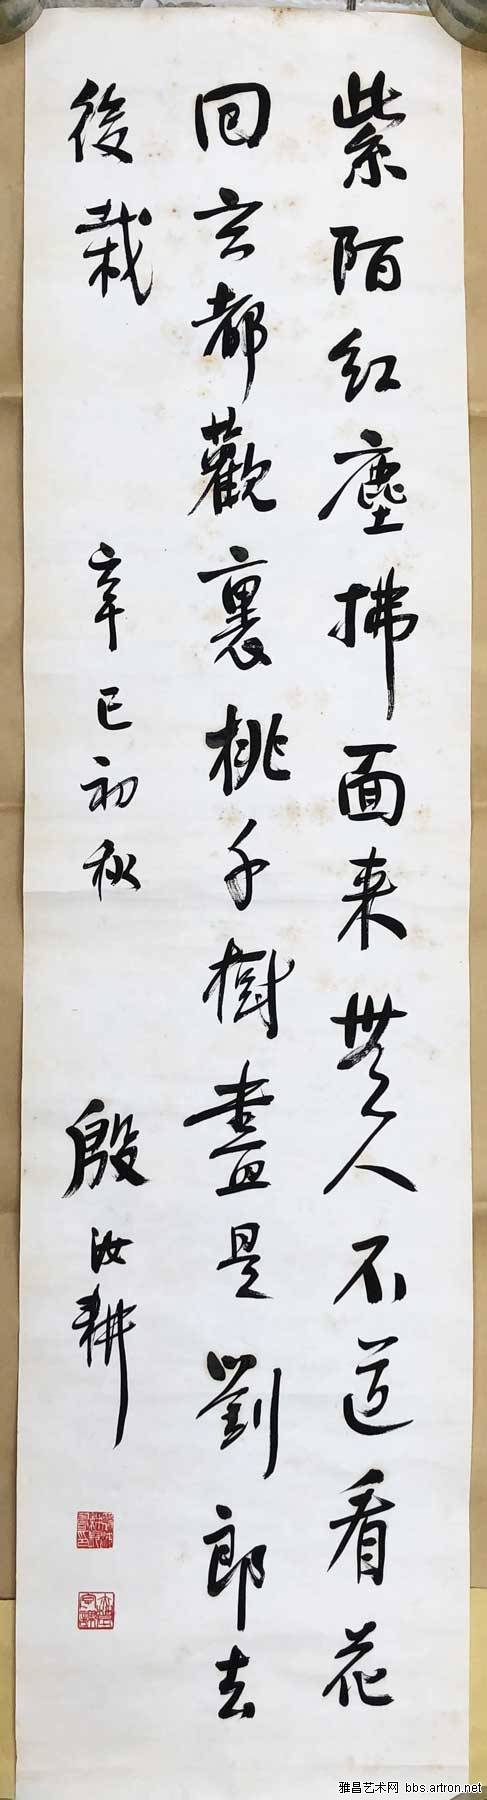 紫陌红塵拂面来無人不道看花
回玄都觀裏桃千樹盡是劉郎去
後栽
辛巳初秋
殷汝耕
雅昌艺术网 bbs.artron.net